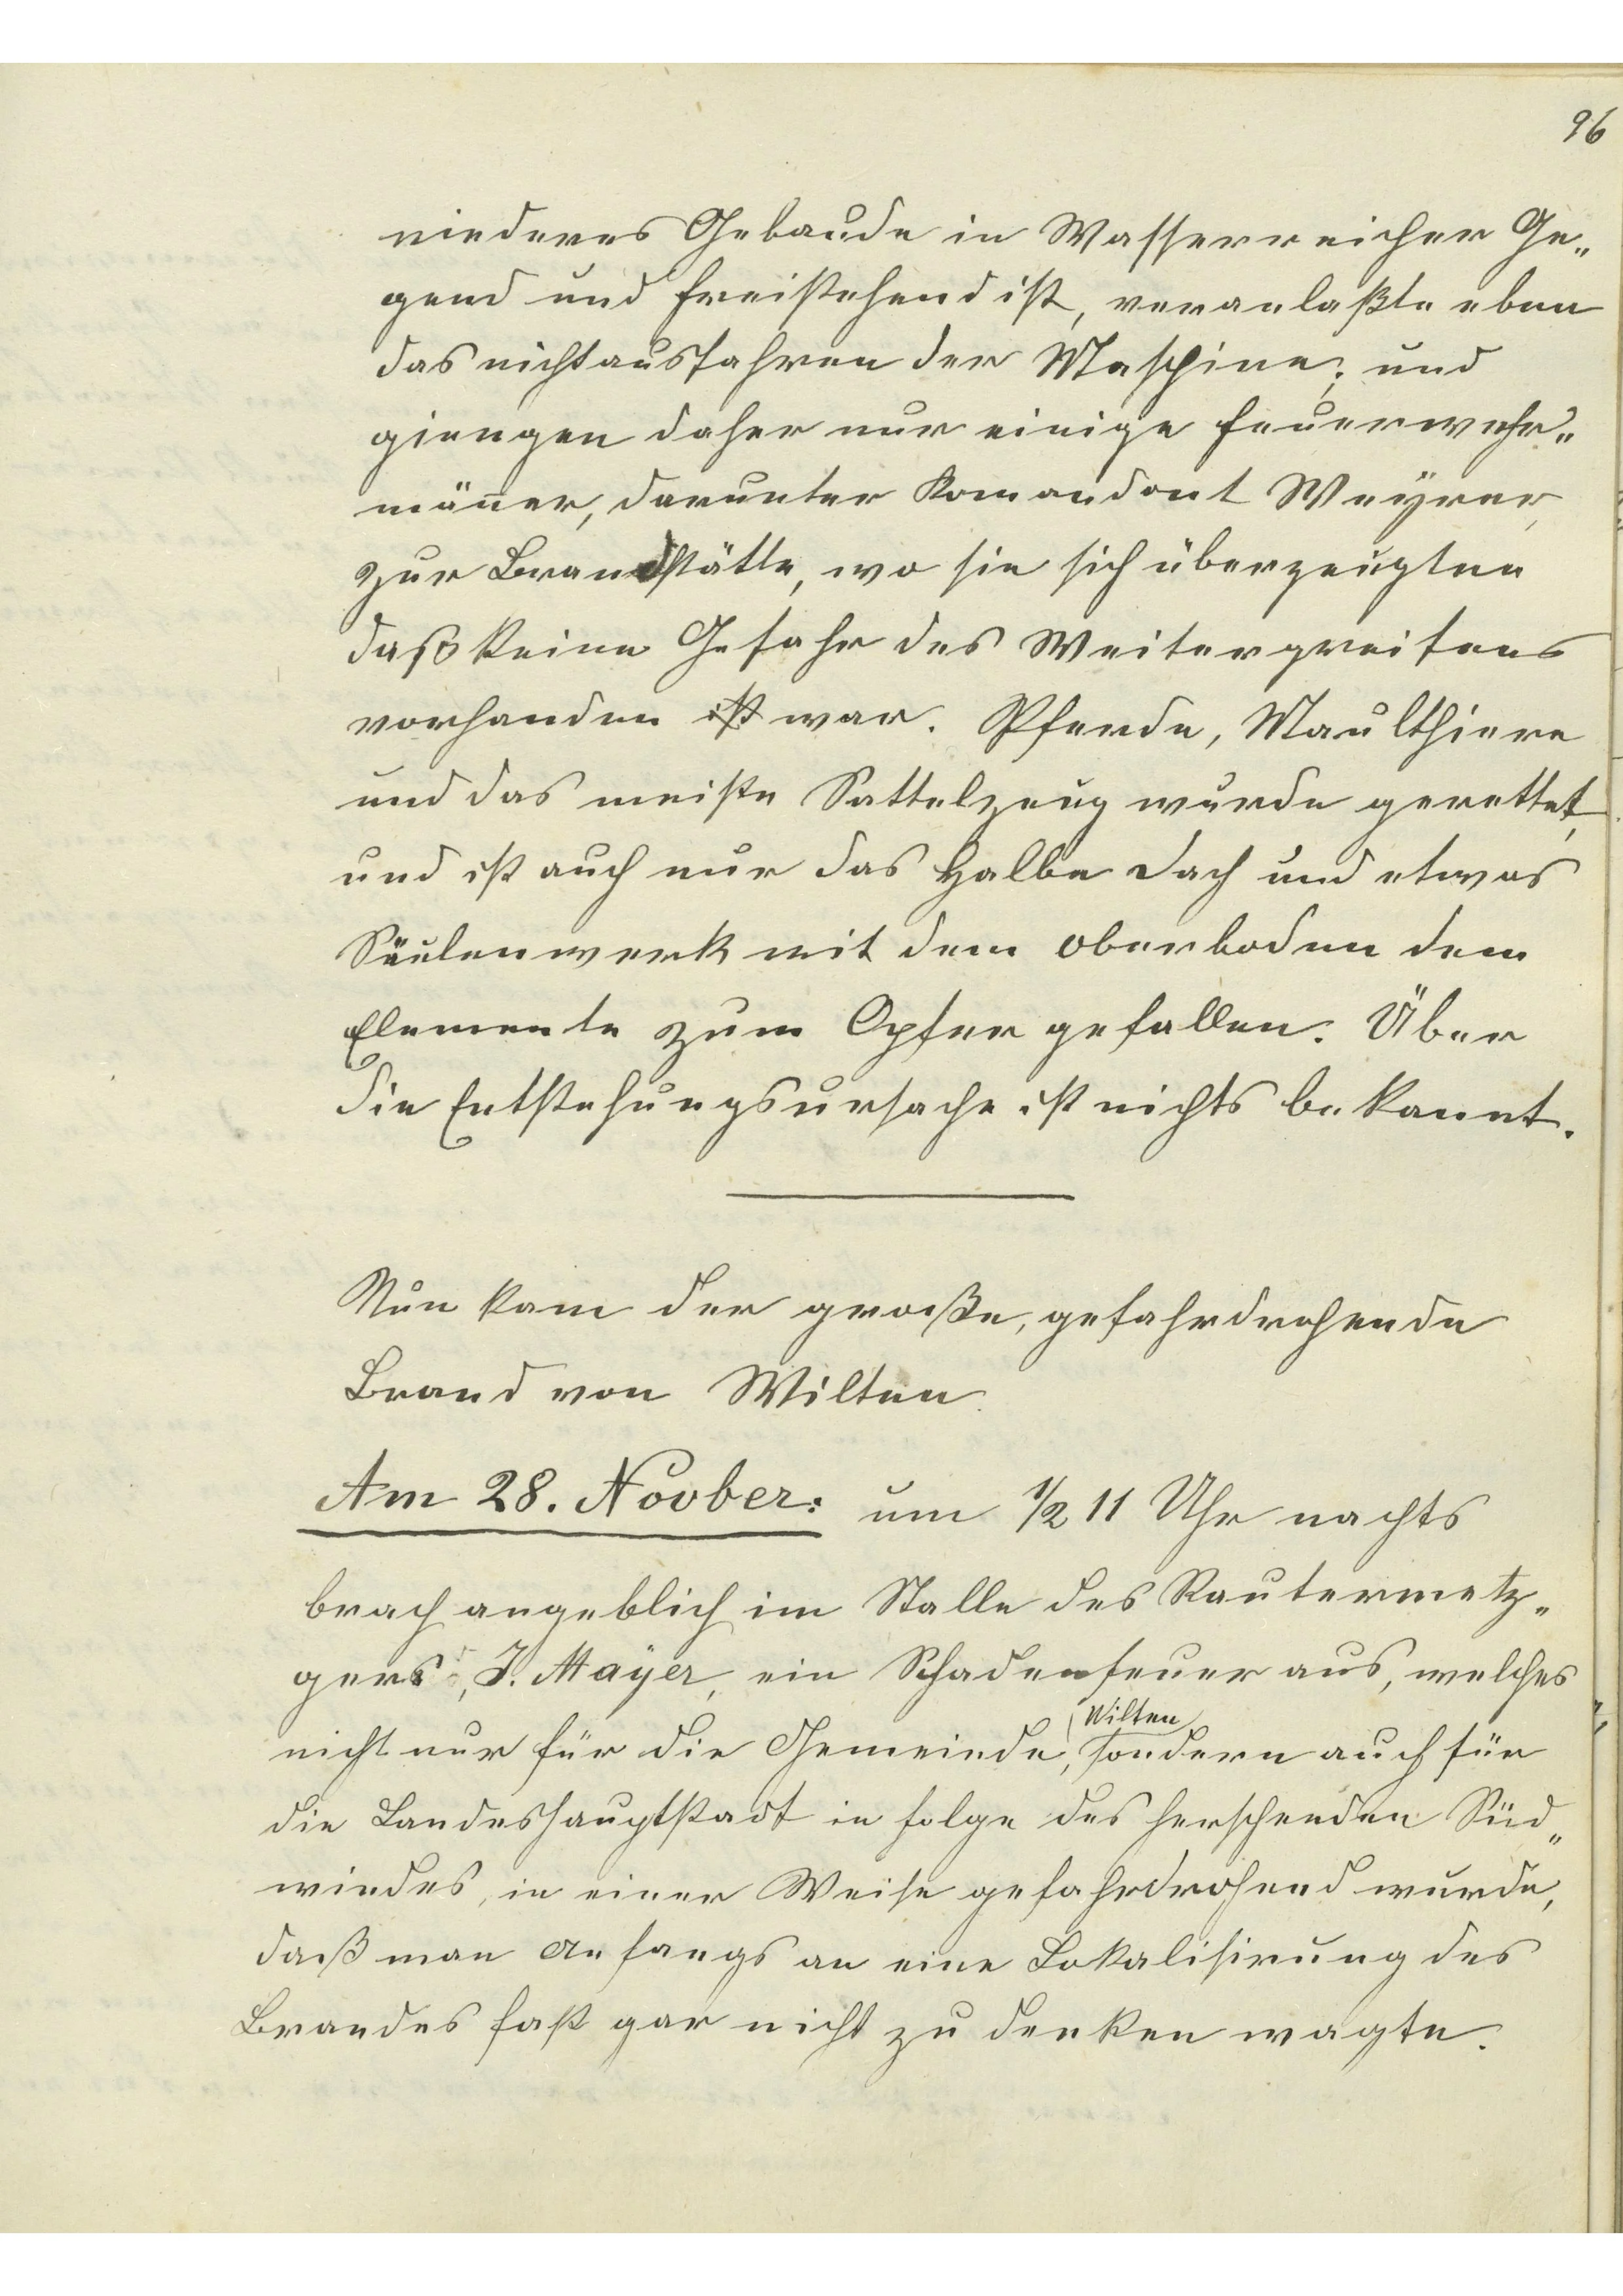 96
niederes Gebaude in Wasserreicher Ge„
gend und freistehend ist, veranlaßte eben
das nichtausfahren der Maschine; und
giengen daher nur einige Feuerwehr„
mäñer, darunter Komandant Weyrer,
zur Brandstätte, wo sie sich überzeugten
daß keine Gefahr des Weitergreifens
vorhanden ist war. Pferde, Maulthiere
und das meiste Sattelzeug wurde gerettet,
und ist auch nur das Halbe Dach und etwas
Säulenwerk mit dem Oberboden dem
Elemente zum Opfer gefallen. Über
die Entstehungsursache ist nichts bekannt.
Nun kam der große, gefahrdrohende
Brand von Wilten.
Am 28. Novber: um 1/2 11 Uhr nachts
brach angeblich im Stalle des Rautermetz„
gers, J. Mayer, ein Schadenfeuer aus, welches
nicht nur für die Gemeinde Wilten, sondern auch für
die Landeshauptstadt in folge des herschenden Süd„
windes, in einer Weise gefahrdrohend wurde,
daß man Anfangs an eine Lokalisirung des
Brandes fast gar nicht zu denken wagte.